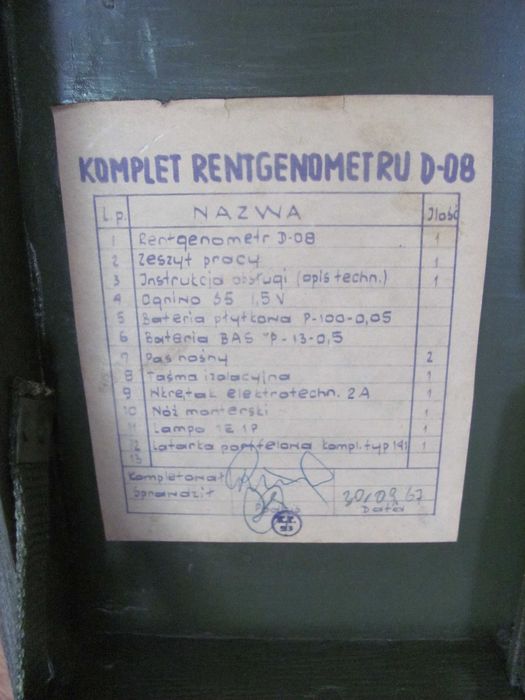 KOMPLET RENTGENOMETRU D-08
L.p. NAZWA Ilość
1 Rentgenometr D-08 1
2 Zeszyt pracy 1
3 Instrukcja obsługi (opis techn.) 1
4 Ogniwo S5 1,5 V
5 Bateria płytkowa P-100-0,05
6 Bateria BAS "P-13-0,5
7 Pas nośny 2
8 Taśma izolacyjna 1
9 Wkrętak elektrotechn. 2A 1
10 Nóż monterski 1
11 Lampa 1E1P 1
12 Latarka portfelowa kompl. typ 141 1
13
Kompletował
Sprawdził 30.09.67
Podpis Data